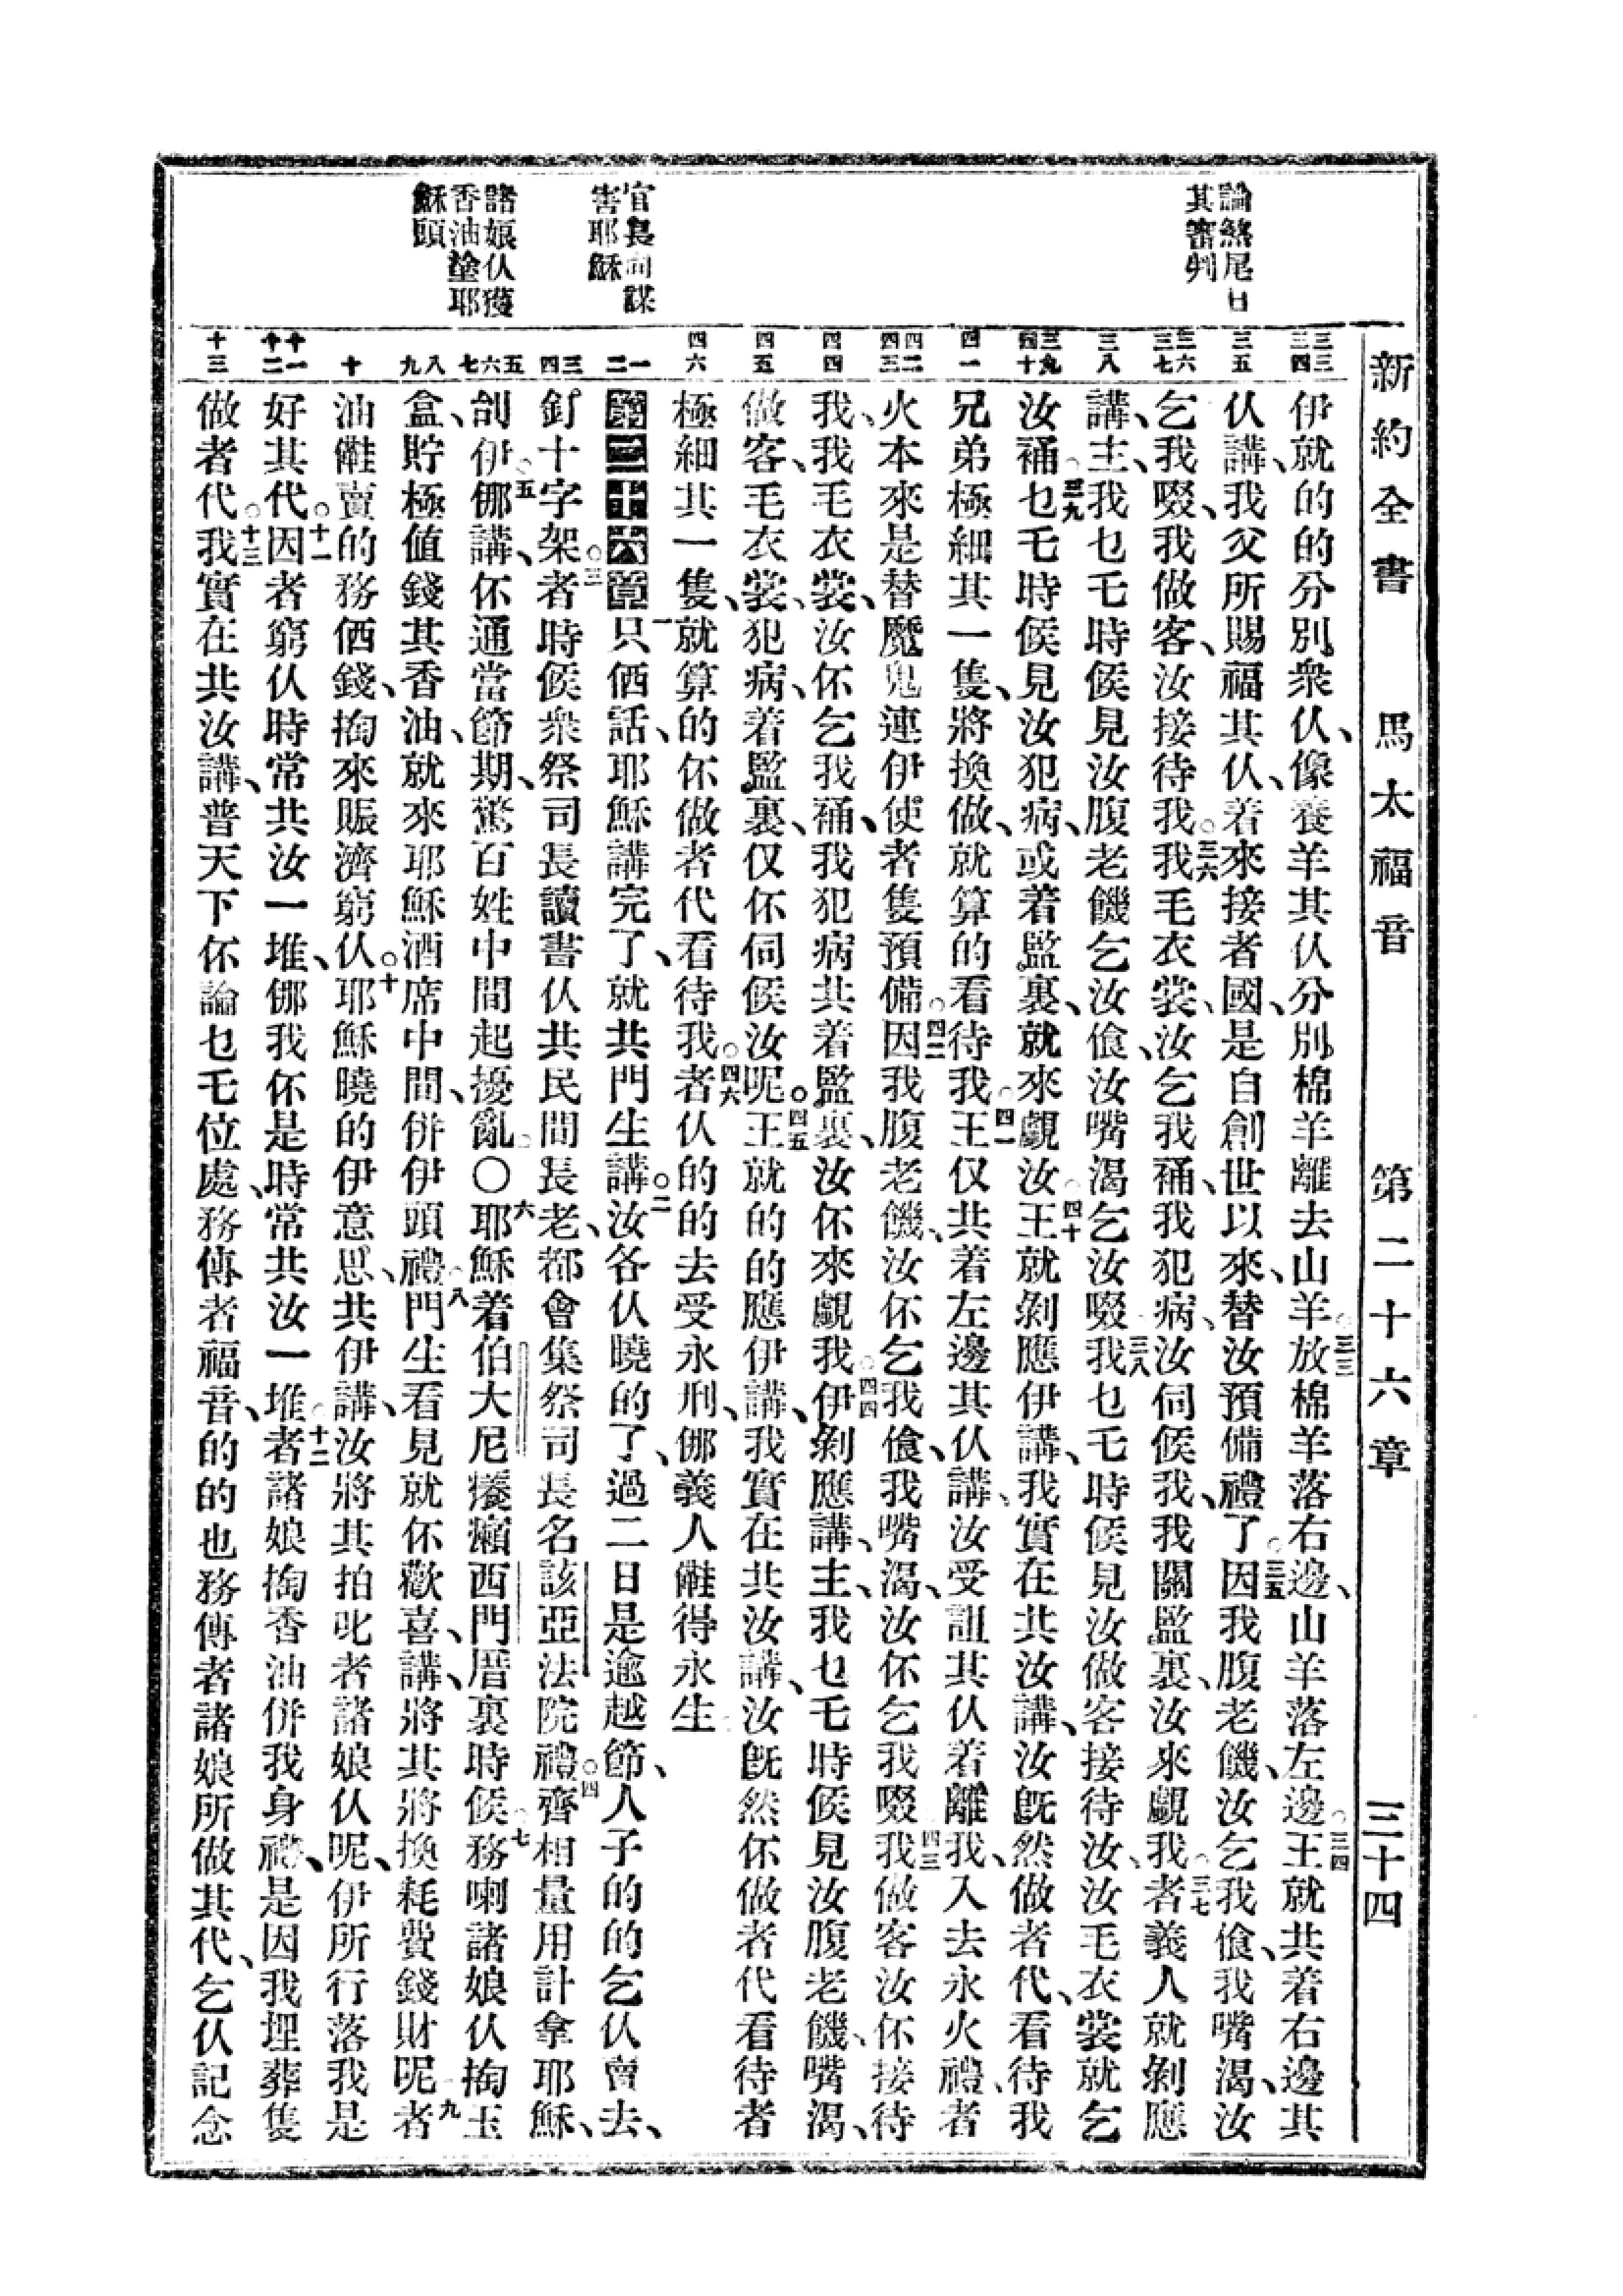 新約全書 馬太福音 第二十六章 三十四
論煞尾日
其審判
官長同謀
害耶穌
諸娘仈獲
香油塗耶
穌頭
三三 三四
三五
三六 三七
三八
三九 四十
四一
四二 四三
四四
四五
四六
一 二
三 四
五 六 七
八 九
十
十一 十二
十三
伊就的的分別衆仈、像養羊其仈分別棉羊離去山羊○三三放棉羊落右邊、山羊落左邊○三四王就共着右邊其
仈講、我父所賜福其仈、着來接者國、是自創世以來、替汝預備禮了○三五因我腹老饑、汝乞我飡、我嘴渴、汝
乞我啜、我做客、汝接待我○三六我毛衣裳、汝乞我裲、我犯病、汝伺候我、我關監裏、汝來覷我○三七者義人就剝應
講、主、我乜乇時候見汝腹老饑乞汝飡、汝嘴渴乞汝啜○三八我乜乇時候見汝做客接待汝、汝毛衣裳就乞
汝裲○三九乜乇時候見汝犯病、或着監裏、就來覷汝○四十王就剝應伊講、我實在共汝講、汝旣然做者代、看待我
兄弟極細其一隻、將換做、就算的看待我○四一王仅共着左邊其仈講、汝受詛其仈着離我、入去永火禮、者
火本來是替魔鬼連伊使者隻預備○四二因我腹老饑、汝伓乞我飡、我嘴渴、汝伓乞我啜○四三我做客汝伓接待
我、我毛衣裳、汝伓乞我裲、我犯病共着監裏、汝伓來覷我○四四伊剝應講、主、我乜乇時候見汝腹老饑、嘴渴、
做客、毛衣裳、犯病、着監裏、仅伓伺候汝呢○四五王就的的應伊講、我實在共汝講、汝旣然伓做者代看待者
極細其一隻、就算的伓做者代看待我○四六者仈的的去受永刑、㑚義人㒕得永生
第二十六章 一只㒲話、耶穌講完了、就共門生講○二汝各仈曉的了、過二日是逾越節、人子的的乞仈賣去、
釘十字架○三者時候衆祭司長讀書仈共民間長老、都會集祭司長名該亞法院禮○四齊相量用計拿耶穌、
刣伊○五㑚講、伓通當節期、驚百姓中間起擾亂○○六耶穌着伯大尼癢癩西門厝裏時候○七務喇諸娘仈掏玉
盒、貯極值錢其香油、就來耶穌酒席中間、併伊頭禮○八門生看見就伓歡喜、講、將其將換耗費錢財呢○九者
油㒕賣的務㒲錢、掏來賑濟窮仈○十耶穌曉的伊意思、共伊講、汝將其拍叱者諸娘仈呢、伊所行落我是
好其代○十一因者窮仈時常共汝一堆、㑚我伓是時常共汝一堆○十二者諸娘掏香油併我身禮、是因我埋葬隻
做者代○十三我實在共汝講、普天下伓論乜乇位處、務傳者福音、的的也務傳者諸娘所做其代、乞仈記念